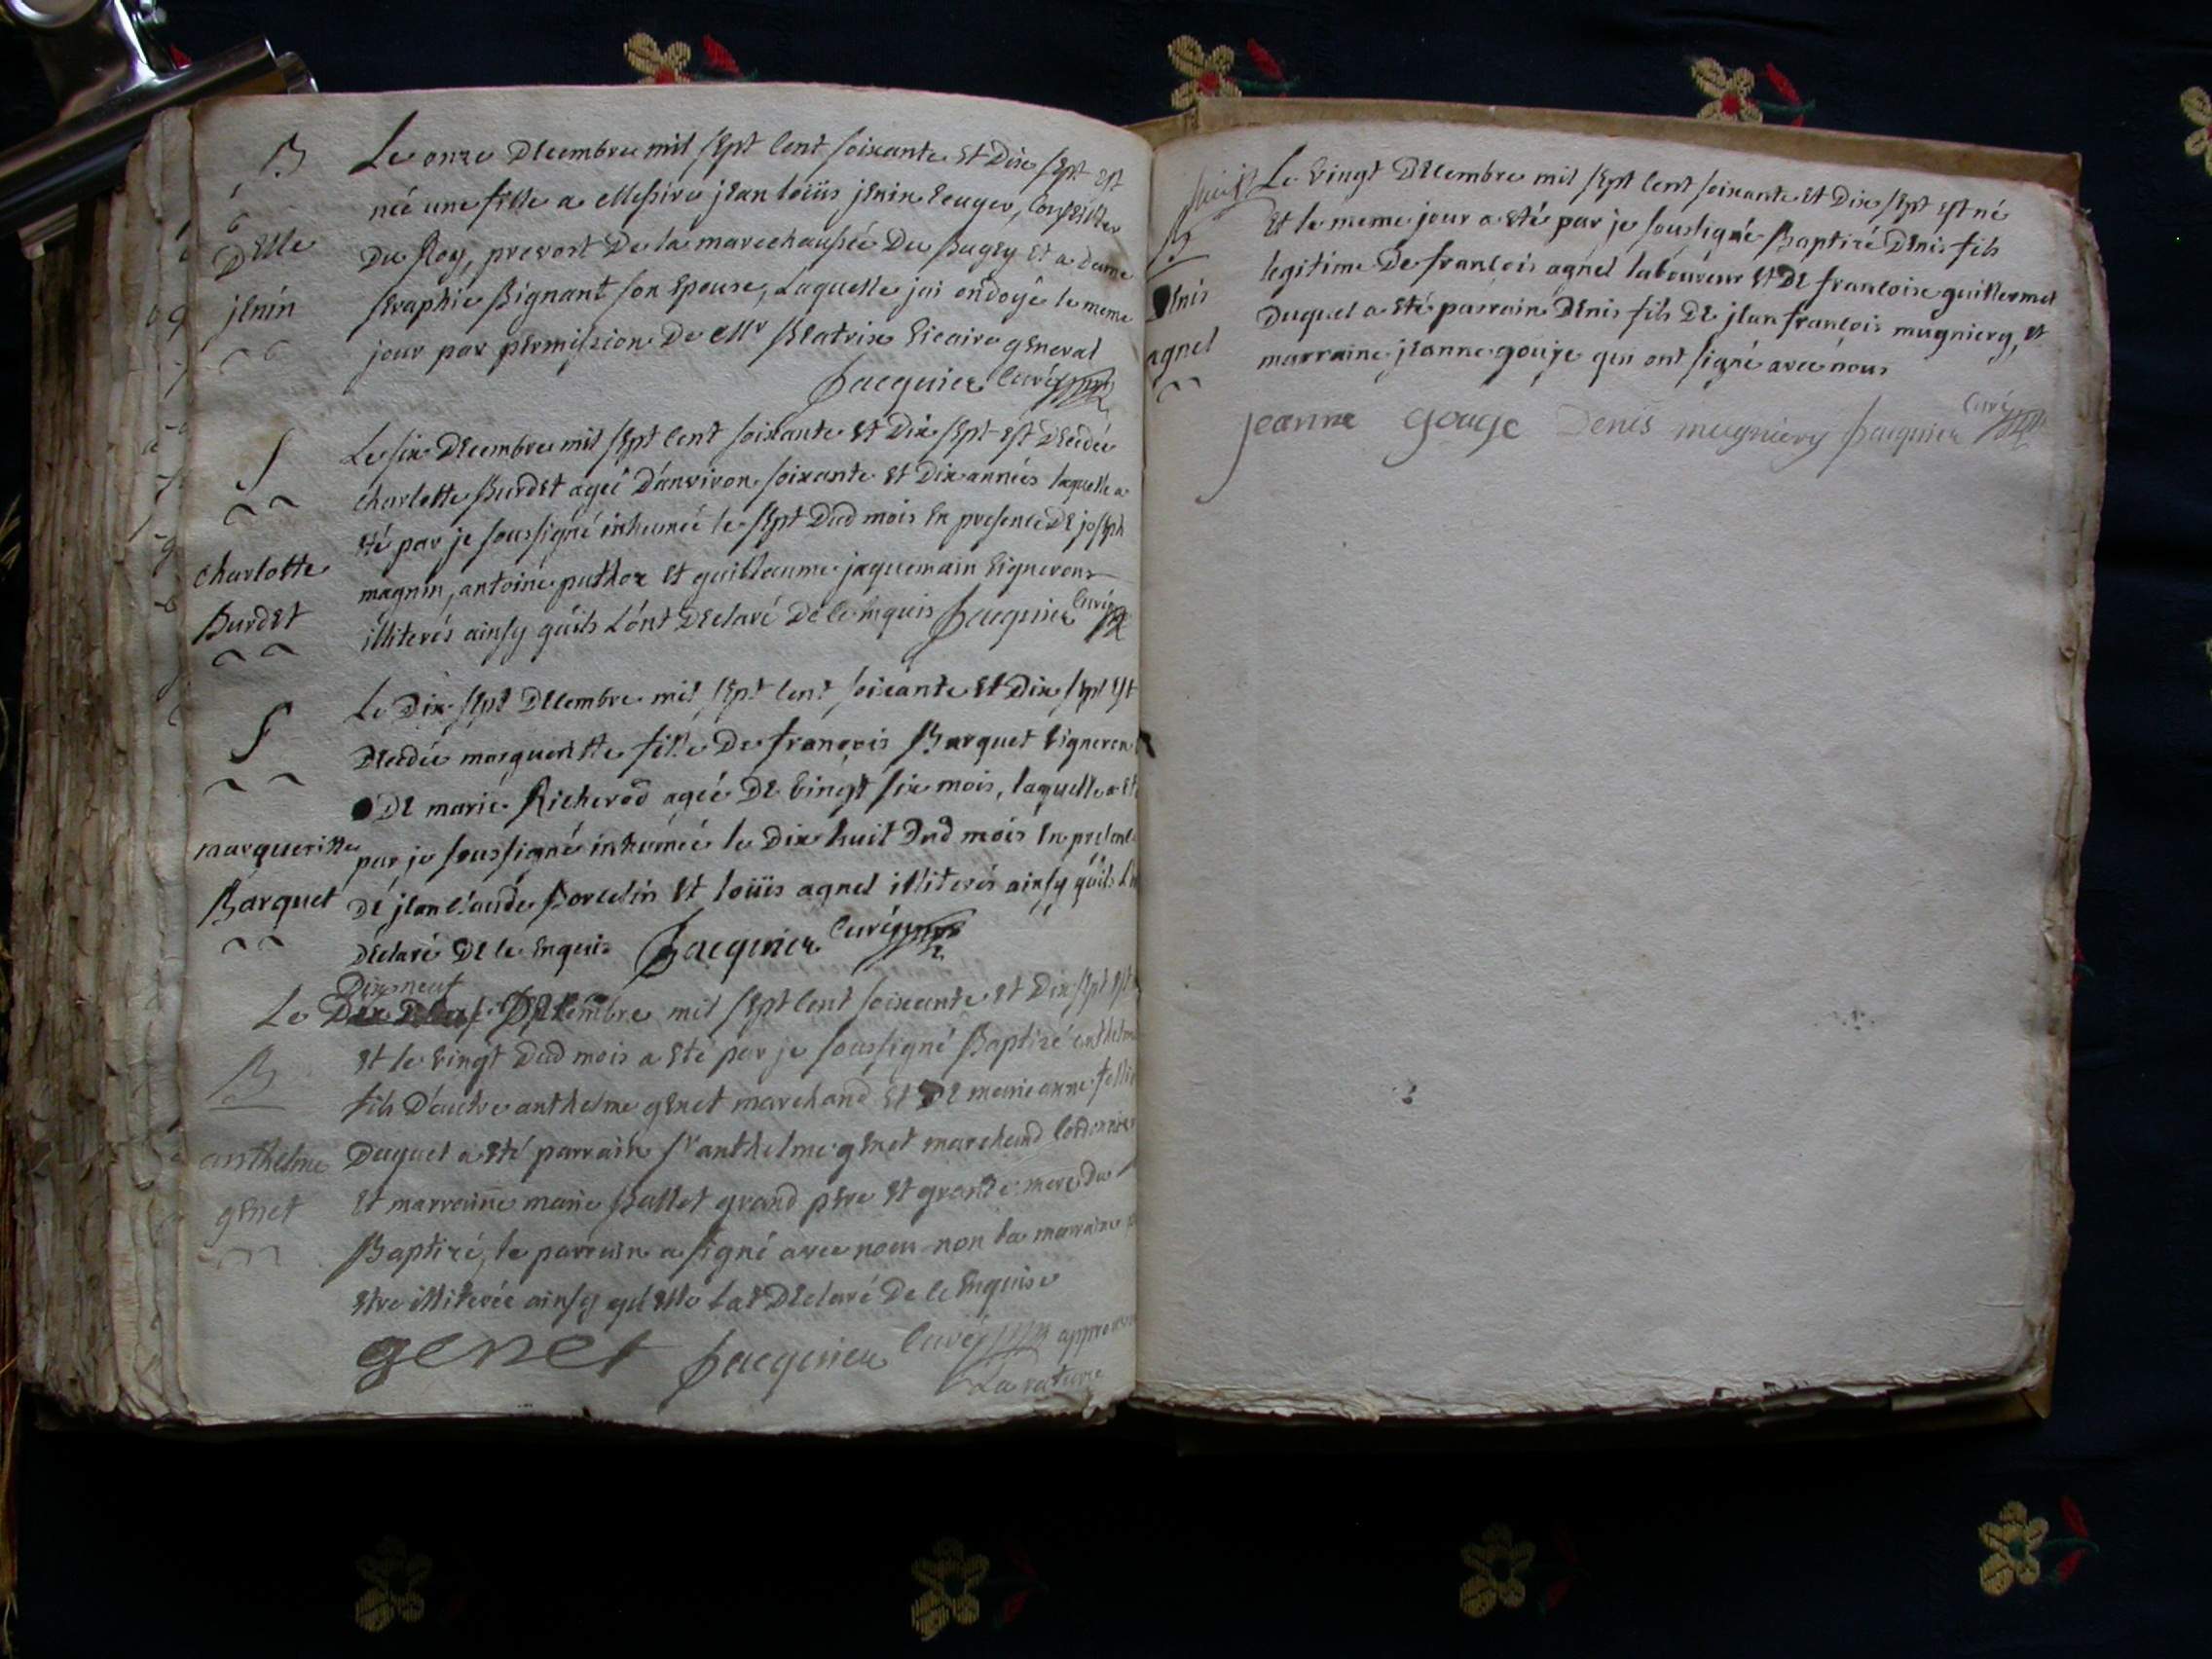 B
Delle
jenin
Le onze Decembre mil sept cent soixante et Dix sept est
née une fille a Messire jean loüis jenin
Du Roy, prevost De la marechaussée Du Bugey et a dame
seraphie Bignant son epouse, Laquelle jai ondoyé le meme
jour par permission De Mr Beatrix vicaire general
Jacquier curé
S
charlotte
Burdet
Le six Decembre mil sept cent soixante et Dix sept est Decedée
charlotte Burdet ageé D'anviron soixante et Dix années laquelle a
eté par je soussigné inhumée le sept Dud mois en presence De joseph
magnin, antoine puthox et guillaume jaquemain vignerons
illiterés ainsy quils L'ont Declaré De ce enquis Jacquier curé
S
margueritte
Barquet
Le Dix sept Decembre mil sept cent soixante et Dix sept est
Decedée margueritte fille De françois Barquet vigneron
De marie Richerod ageé De vingt six mois, laquelle a eté
par je soussigné inhumeé le Dix huit Dud mois en presence
De jean claude Borcelin et loüis agnel illiterés ainsy quils L'ont
Declaré De ce enquis Jacquier curé
Dix neuf
Le Decembre mil sept cent soixante et Dix sept est
B
anthelme
genet
et le vingt Dud mois a eté par je soussigné Baptizé anthelme
fils D'autre anthelme genet marchand et De marie anne
Duquel a eté parrain Sr anthelme genet marchand cordonnier
et marraine marie Ballet grand pere et grande mere du
Baptizé, le parrain a signé avec nous non la marraine p
estre illiterée ainsy qu'elle La Declaré De ce enquise
genet Jacquier curé approuvé
La rature
B
Denis
agnel
Le vingt Decembre mil sept cent soixante et Dix sept est né
et le meme jour a eté par je soussigné Baptizé Denis fils
legitime De françois agnel laboureur et De francoise guillermet
Duquel a eté parrain Denis fils De jean françois mugniery, et
marraine jeanne gouje qui ont signé avec nous
jeanne gouje Denis mugniery Jacquier curé